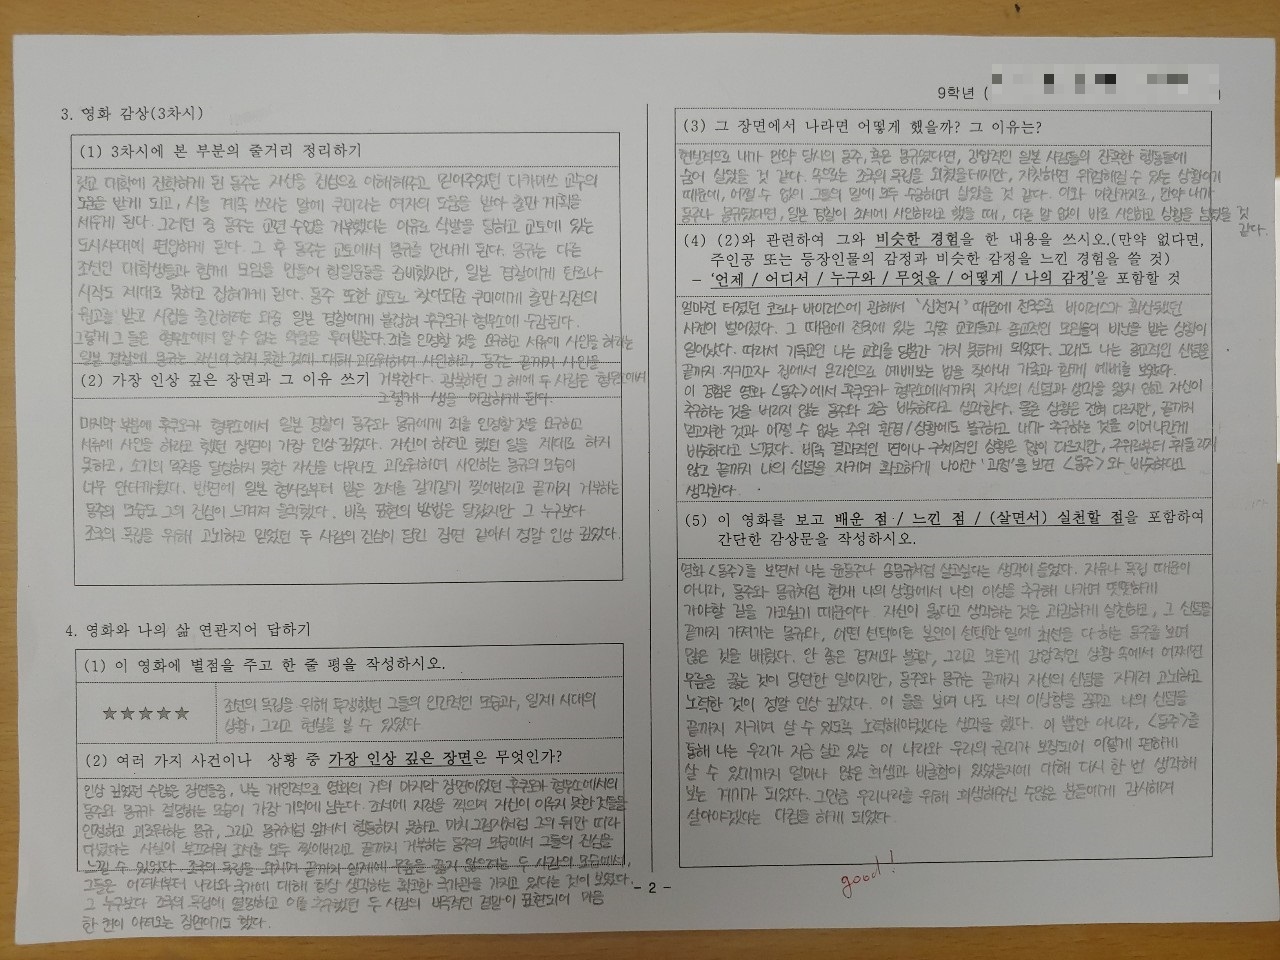 3. 영화 감상(3차시)
(1) 3차시에 본 부분의 줄거리 정리하기
대학에 진학하게 된 동주는 자신을 진심으로 이해해주고 믿어주었던 다카마쓰 교수의
도움을 받게 되고, 시를 계속 쓰라는 말에 쿠미라는 여자의 도움을 받아 출판 계획을
세우게 된다. 그러던 중 동주는 교련 수업을 거부했다는 이유로 식발을 당하고 교토에 있는
도시샤대에 편입하게 된다. 그 후 동주는 교토에서 몽규를 만나게 된다. 몽규는 다른
조선인 대학생들과 함께 모임을 만들어 항일운동을 준비했지만, 일본 경찰에게 탄로나
시작도 제대로 못하고 잡혀가게 된다. 동주 또한 교토로 찾아왔던 쿠미에게 출판 직전의
원고를 받고 시집을 출간하려는 와중 일본 경찰에게 붙잡혀 후쿠오카 형무소에 수감된다.
그렇게 그 둘은 형무소에서 알 수 없는 약물을 투여받는다. 죄를 인정할 것을 요구하고 서류에 사인을 하라는
일본 경찰에 몽규는 자신이 하지 못한 것에 대해 괴로워하며 사인하고, 동주는 끝까지 사인을
(2) 가장 인상 깊은 장면과 그 이유 쓰기 거부한다. 광복하던 그 해에 두 사람은 형무소에서
그렇게 생을 마감하게 된다.
마지막 부분에 후쿠오카 형무소에서 일본 경찰이 동주와 몽규에게 죄를 인정할 것을 요구하고
서류에 사인을 하라고 했던 장면이 가장 인상 깊었다. 자신이 하려고 했던 일을 제대로 하지
못하고, 소기의 목적을 달성하지 못한 자신을 나무라고 괴로워하며 사인하는 몽규의 모습이
너무 안타까웠다. 반면에 일본 형사로부터 받은 조서를 갈기갈기 찢어버리고 끝까지 거부하는
동주의 모습도 그의 진심이 느껴져 울컥했다. 비록 표현의 방법은 달랐지만 그 누구보다
조국의 독립을 위해 고뇌하고 힘썼던 두 사람의 진심이 담긴 장면 같아서 정말 인상 깊었다.
4. 영화와 나의 삶 연관지어 답하기
(1) 이 영화에 별점을 주고 한 줄 평을 작성하시오.
★★★★★
조선의 독립을 위해 투쟁했던 그들의 인간적인 모습과, 일제 시대의
상황, 그리고 현실을 볼 수 있었다
(2) 여러 가지 사건이나 상황 중 가장 인상 깊은 장면은 무엇인가?
인상 깊었던 수많은 장면들중, 나는 개인적으로 영화의 거의 마지막 장면이었던 후쿠오카 형무소에서의
동주와 몽규가 절망하는 모습이 가장 기억에 남는다. 조서에 지장을 찍으며 자신이 이루지 못한 것들을
인정하고 괴로워하는 몽규, 그리고 몽규처럼 앞에서 행동하지 못하고 마치 그림자처럼 그의 뒤만 따라
다녔다는 사실이 부끄러워 조서를 모두 찢어버리고 끝까지 거부하는 동주의 모습에서 그들의 진심을
느낄 수 있었다. 조국의 독립을 외치며 끝까지 일제에 무릎을 꿇지 않으려는 두 사람의 모습에서,
그들은 어려서부터 나라와 국가에 대해 항상 생각하는 확고한 국가관을 가지고 있다는 것이 보였다.
그 누구보다 조국의 독립에 열망하고 이를 추구했던 두 사람의 비극적인 결말이 표현되어 마음
한 켠이 아려오는 장면이기도 했다.
- 2 -
9학년 (
)
(3) 그 장면에서 나라면 어떻게 했을까? 그 이유는?
현실적으로 내가 만약 당시의 동주, 혹은 몽규였다면, 강압적인 일본 사람들의 잔혹한 행동들에
숨어 살았을 것 같다. 속으로는 조국의 독립을 외쳤을테지만, 자칫하면 위험해질 수 있는 상황이기
때문에, 어쩔 수 없이 그들의 말에 모두 수긍하며 살았을 것 같다. 이와 마찬가지로, 만약 내가
동주나 몽규였다면, 일본 경찰이 조서에 사인하라고 했을 때, 다른 말 없이 바로 사인하고 상황을 넘겼을 것
같다.
(4) (2)와 관련하여 그와 비슷한 경험을 한 내용을 쓰시오.(만약 없다면,
주인공 또는 등장인물의 감정과 비슷한 감정을 느낀 경험을 쓸 것)
- '언제 / 어디서 / 누구와 / 무엇을 / 어떻게 / 나의 감정'을 포함할 것
얼마전 터졌던 코로나 바이러스에 관해서 '신천지' 때문에 전국으로 바이러스가 확산됐던
사건이 벌어졌다. 그 때문에 전국에 있는 각종 교회들과 종교적인 모임들이 비난을 받는 상황이
일어났다. 따라서 기독교인 나는 교회를 당분간 가지 못하게 되었다. 그래도 나는 종교적인 신념을
끝까지 지키고자 집에서 온라인으로 예배보는 법을 찾아내 가족과 함께 예배를 보았다.
이 경험은 영화 <동주>에서 후쿠오카 형무소에서까지 자신의 신념과 생각을 잃지 않고 자신이
추구하는 것을 버리지 않는 동주와 조금 비슷하다고 생각한다. 물론 상황은 전혀 다르지만, 끝까지
믿고자한 것과 어쩔 수 없는 주위 환경/상황에도 불구하고 내가 추구하는 것을 이어나간게
비슷하다고 느꼈다. 비록 결과적인 면이나 구체적인 상황은 많이 다르지만, 주위로부터 휘둘리지
않고 끝까지 나의 신념을 지키며 확고하게 나아간 '과정'을 보면 <동주>와 비슷하다고
생각한다.
(5) 이 영화를 보고 배운 점 / 느낀 점 / (살면서) 실천할 점을 포함하여
간단한 감상문을 작성하시오.
영화 <동주>를 보면서 나는 윤동주나 송몽규처럼 살고싶다는 생각이 들었다. 자유나 독립 때문이
아니라, 동주와 몽규처럼 현재 나의 상황에서 나의 이상을 추구해 나가며 떳떳하게
가야할 길을 가고싶기 때문이다. 자신이 옳다고 생각하는 것은 과감하게 실천하고, 그 신념을
끝까지 가져가는 몽규와, 어떤 선택이든 본인이 선택한 일에 최선을 다하는 동주를 보며
많은 것을 배웠다. 안 좋은 경제와 불황, 그리고 모든게 강압적인 상황 속에서 어찌보면
무릎을 꿇는 것이 당연한 일이지만, 동주와 몽규는 끝까지 자신의 신념을 지키려 고뇌하고
노력한 것이 정말 인상 깊었다. 이 둘을 보며 나도 나의 이상향을 꿈꾸고 나의 신념을
끝까지 지키며 살 수 있도록 노력해야겠다는 생각을 했다. 이 뿐만 아니라, <동주>를
통해 나는 우리가 지금 살고 있는 이 나라와 우리의 권리가 보장되어 이렇게 편하게
살 수 있기까지 얼마나 많은 희생과 비극함이 있었을지에 대해 다시 한 번 생각해
보는 계기가 되었다. 그만큼 우리나라를 위해 희생해주신 수많은 분들에게 감사하며
살아야겠다는 다짐을 하게 되었다.
good!